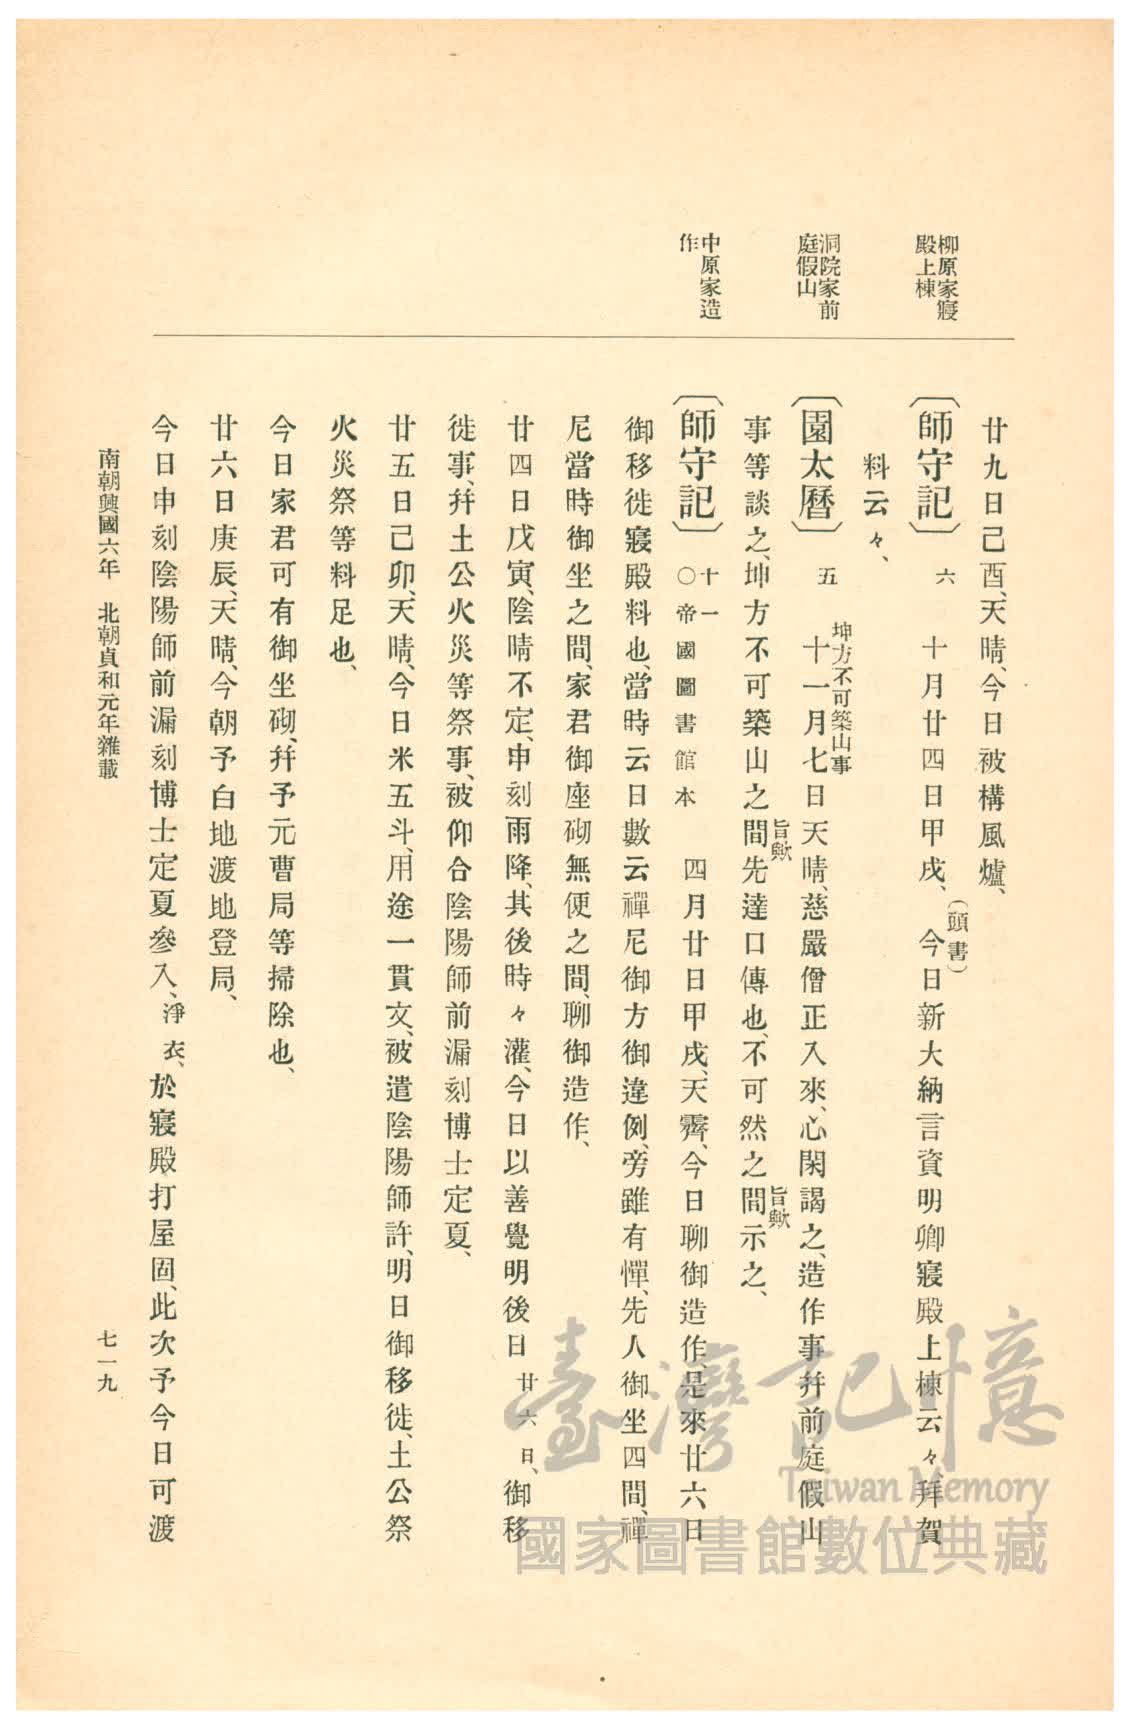 柳原家寢
殿上棟
洞院家前
庭假山
中原家造
作
廿九日己酉、天晴、今日被構風爐、
〔師守記〕 六 十月廿四日甲戌、 今日新大納言資明卿寢殿上棟云々、拜賀
(頭書)
料云々、
坤方不可築山事
〔園太曆〕 五 十一月七日天晴、慈嚴僧正入來、心閑謁之、造作事幷前庭假山
事等談之、坤方不可築山之間先達口傳也、不可然之間示之、
旨歟
旨歟
〔師守記〕 十一 ○帝國圖書館本 四月廿日甲戌、天霽、今日聊御造作、是來廿六日
御移徙寢殿料也、當時云日數云禪尼御方御違例、旁雖有憚、先人御坐四間、禪
尼當時御坐之間、家君御座砌無便之間、聊御造作、
廿四日戊寅、陰晴不定、申刻雨降、其後時々灌、今日以善覺明後日廿六日、御移
徙事、幷土公火災等祭事、被仰合陰陽師前漏刻博士定夏、
廿五日己卯、天晴、今日米五斗、用途一貫文、被遣陰陽師許、明日御移徙、土公祭
火災祭等料足也、
今日家君可有御坐砌、幷予元曹局等掃除也、
廿六日庚辰、天晴、今朝予白地渡地登局、
今日申刻陰陽師前漏刻博士定夏參入、淨衣、於寢殿打屋固、此次予今日可渡
南朝興國六年 北朝貞和元年雜載
七一九
臺灣記憶
Taiwan Memory
國家圖書館數位典藏